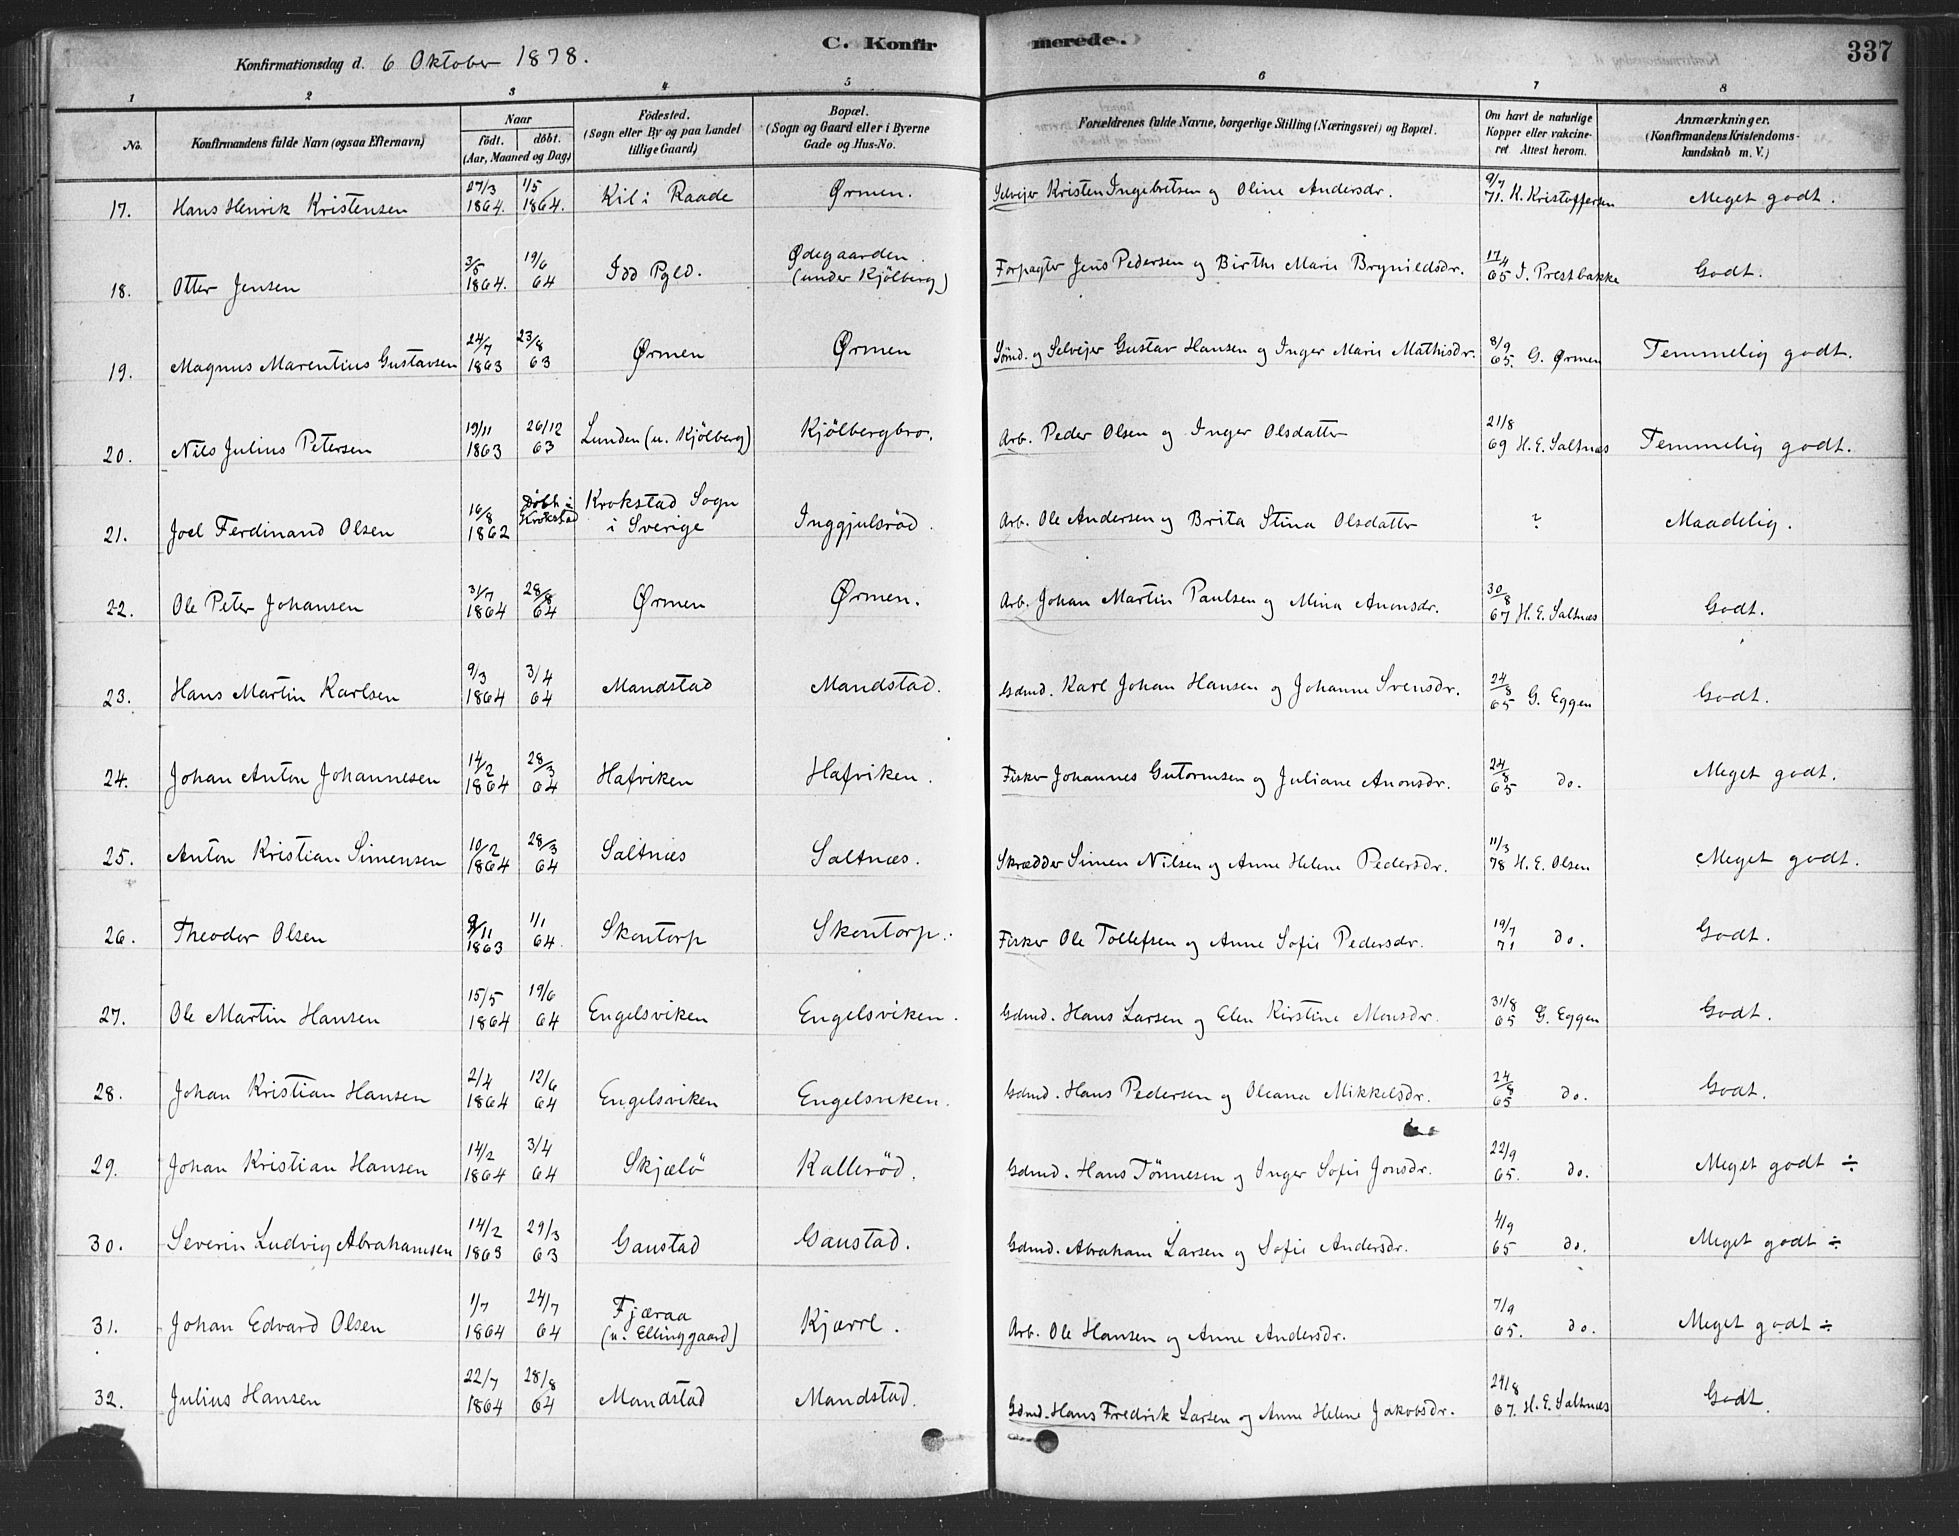 C. Konfirmerede. 337
Konfirmationsdag d. 6 Oktober 1878.
1 2 3 4 5 6 7 8
No. Konfirmandens fulde Navn (ogsaa Efternavn) Naar født. døbt. (Aar, Maaned og Dag) Fødested. (Sogn eller By og paa Landet tillige Gaard) Bopæl. (Sogn og Gaard eller i Byerne Gade og Hus-No. Forældrenes fulde Navne, borgerlige Stilling (Næringsvei) og Bopæl. Om havt de naturlige Kopper eller vakcineret Attest herom. Anmærkninger. (Konfirmandens Kristendomskundskab m. V.)
17. Hans Henrik Kristensen 27/3 1864. 1/5 1864. Kil i Raade Ørmen. Selvejer Kristen Ingebretsen og Oline Andersdr. 9/7 71. K. Kristoffersen Meget godt.
18. Otter Jensen 3/5 1864. 19/6 64 Idd Pgld. Ødegaarden (under Kjölberg) Forpagter Jens Pedersen og Birthe Marie Brynildsdr. 17/4 65 I. Prestbakke Godt.
19. Magnus Marentius Gustavsen 24/7 1863 23/8 63 Ørmen Ørmen Tømd. og Selvejer Gustav Hansen og Inger Marie Mathisdr. 8/9 65. G. Ørmen Temmelig godt.
20. Nils Julius Petersen 19/11 1863 26/12 63 Lunden (u. Kjölberg) Kjölbergbro. Arb. Peder Olsen og Inger Olsdatter 21/8 69 H. E. Saltnæs Temmelig godt.
21. Joel Ferdinand Olsen 16/8 1862 Döbt i Krokstad Krokstad Sogn i Sverige Inggjulsröd. Arb. Ole Andersen og Brita Stina Olsdatter ? Maadelig.
22. Ole Peter Johansen 31/7 1864 28/8 64 Ørmen Ørmen. Arb. Johan Martin Paulsen og Mina Anonsdr. 30/8 67 H. E. Saltnæs Godt.
23. Hans Martin Karlsen 9/3 1864 3/4 64 Mandstad Mandstad. Gdmd. Karl Johan Hansen og Johanne Svensdr. 24/8 65 G. Eggen Godt.
24. Johan Anton Johannesen 14/2 1864 28/3 64 Hafviken Hafviken. Fisker Johannes Gutormsen og Juliane Anonsdr. 24/8 65 do. Meget godt.
25. Anton Kristian Simensen 10/2 1864 28/3 64 Saltnæs Saltnæs. Skrædder Simen Nilsen og Anne Helene Pedersdr. 11/3 78 H. E. Olsen Meget godt.
26. Theodor Olsen 9/11 1863 1/1 64. Skontorp Skontorp. Fisker Ole Tollefsen og Anne Sofie Pedersdr. 19/7 71 do. Godt.
27. Ole Martin Hansen 15/5 1864 19/6 64 Engelsviken Engelsviken. Gdmd. Hans Larsen og Elen Kirstine Monsdr. 31/8 65 G. Eggen Godt.
28. Johan Kristian Hansen 2/4 1864 12/6 64 Engelsviken Engelsviken. Gdmd. Hans Pedersen og Oleana Mikkelsdr. 24/8 65 do. Godt.
29. Johan Kristian Hansen 14/2 1864 3/4 64 Skjælö Kalleröd. Gdmd. Hans Tønnesen og Inger Sofie Jonsdr. 22/9 65. do. Meget godt ÷
30. Severin Ludvig Abrahamsen 14/2 1863 29/3 63 Gaustad Gaustad. Gdmd. Abraham Larsen og Sofie Andersdr. 4/9 65 do. Meget godt ÷
31. Johan Edvard Olsen 1/7 1864 24/7 64 Fjæraa (u. Ellinggaard) Kjærre. Arb. Ole Hansen og Anne Andersdr. 7/9 65. do. Meget godt ÷
32. Julius Hansen 22/7 1864 28/8 64 Mandstad Mandstad. Gdmd. Hans Fredrik Larsen og Anne Helene Jakobsdr. 24/8 67. H. E. Saltnæs Godt.